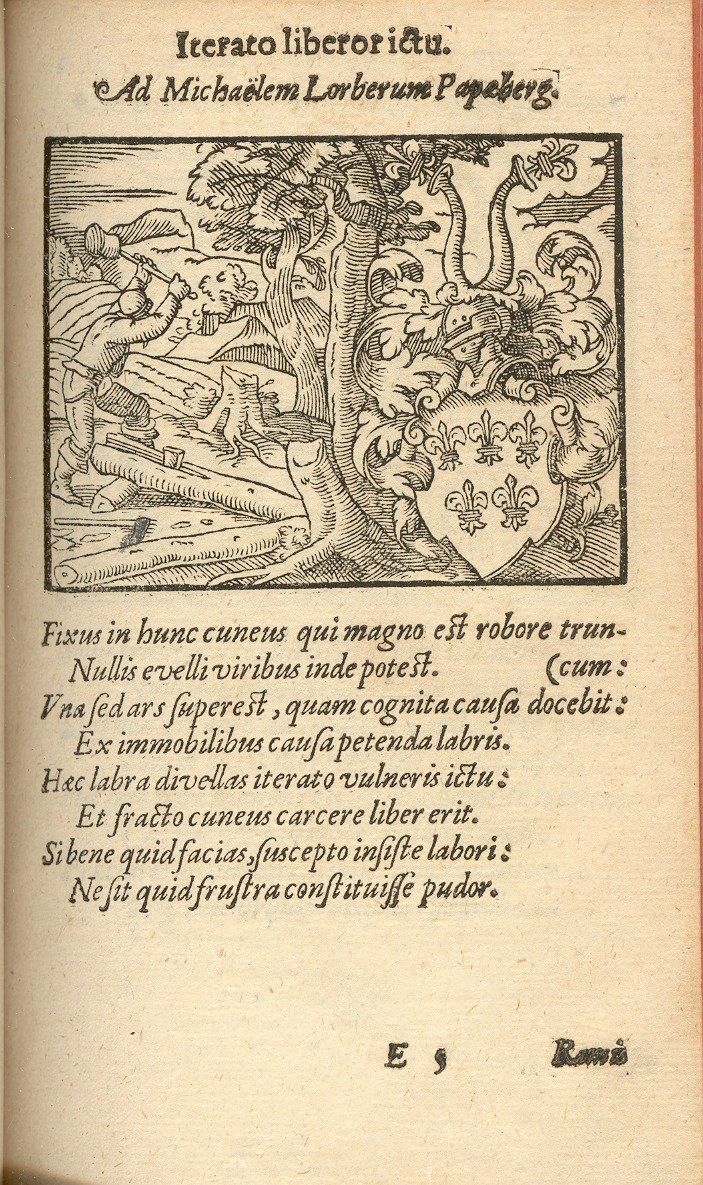 Iterato liberor ictu.
Ad Michaëlem Lorberum Papæberg.
Fixus in hunc cuneus qui magno est robore trun-
Nullis evelli viribus inde potest. (cum:
Vna sed ars superest, quam cognita causa docebit:
Ex immobilibus causa petenda labris.
Hæc labra divellas iterato vulneris ictu:
Et fracto cuneus carcere liber erit.
Si bene quid facias, suscepto insiste labori:
Ne sit quid frustra constituisse pudor.
E 5